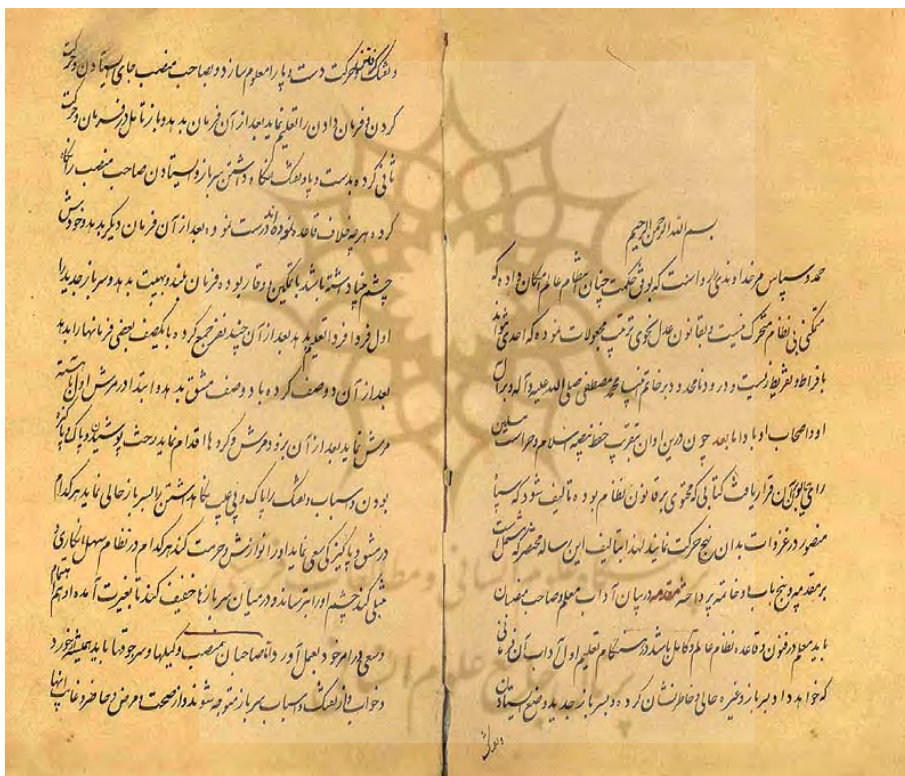 بسم الله الرحمن الرحیم
حمد و سپاس مر خداوندی را رواست که بوفق حکمت چنان انتظام عالم امکان داده که
ممکنی بی نظام متحرک نیست و بقانون عدل نحوی ترتیب مجهولات نموده که احدی
بافراط و تفریط نیست و درود نامحدود بر خاتم انبیا محمد مصطفی صلی الله علیه و آله و بر آل
او و اصحاب او باد اما بعد چون درین اوان بتقریب حفظ بیضه اسلام و حراست مسلمین
رای قرار یافت کتابی که محتوی بر قانون نظام بوده تالیف شود که سپاه
منصور در غزوات بدان نهج حرکت نمایند لهذا بتالیف این رساله مختصر که مشتمل است
بر مقدمه و پنج باب و خاتمه پرداخته مقدمه در بیان آداب معلم و صاحب منصبان
باید معلم در فنون و قاعده نظام عالم و کامل باشد در هنگام تعلیم اول آداب آن
که خواهد داد بسرباز و غیره حالی و خاطر نشان کرده و بسرباز جدید وضع ایستادن
و تفنگ
و تفنگ گرفتن و حرکت دست و پا را معلوم سازد و بصاحب منصب جای ایستادن و حرکت
کردن و فرمان دادن را تعلیم نماید بعد از آن فرمان بدهد و باز تامل در فرمان و حرکت
ثانی کرده بدست و پا و تفنگ نگاه داشتن سرباز و ایستادن صاحب منصب را نگاه
کرده هر چه خلاف قاعده نموده‌اند درست نموده بعد از آن فرمان دیگر بدهد و خودش
چشم باشد با تمکین و وقار بوده فرمان بلند و بهیبت بدهد و سرباز جدید را
اول فردا فردا تعلیم بدهد بعد از آن چند نفر جمع کرده با یکصف بعضی فرمانها را بدهد
بعد از آن دو صف کرده با دو صف مشق بدهد و ابتدا در مرش اول آهسته
مرش نماید بعد از آن بزود مرش و گردها اقدام نماید رخت پوشیدن و پاک و پاکیزه
بودن و اسباب و تفنگ را پاک و بی عیب نگاهداشتن را بسرباز حالی نماید هر کدام
در مشق و پاکیزگی سعی نماید او را نوازش و حرمت کند هر کدام در نظام سهل انگاری و
تنبلی کند چشم او را بترساند و در میان سربازها خفیف کند تا بغیرت آمده اهتمام
و سعی در امر خود بعمل آورد و اما صاحبان منصب و وکیلها و سرجوقها باید همیشه بخورد
و خواب و از تفنگ و اسباب سرباز متوجه شوند و از صحت و مرض و حاضر و غایب آنها